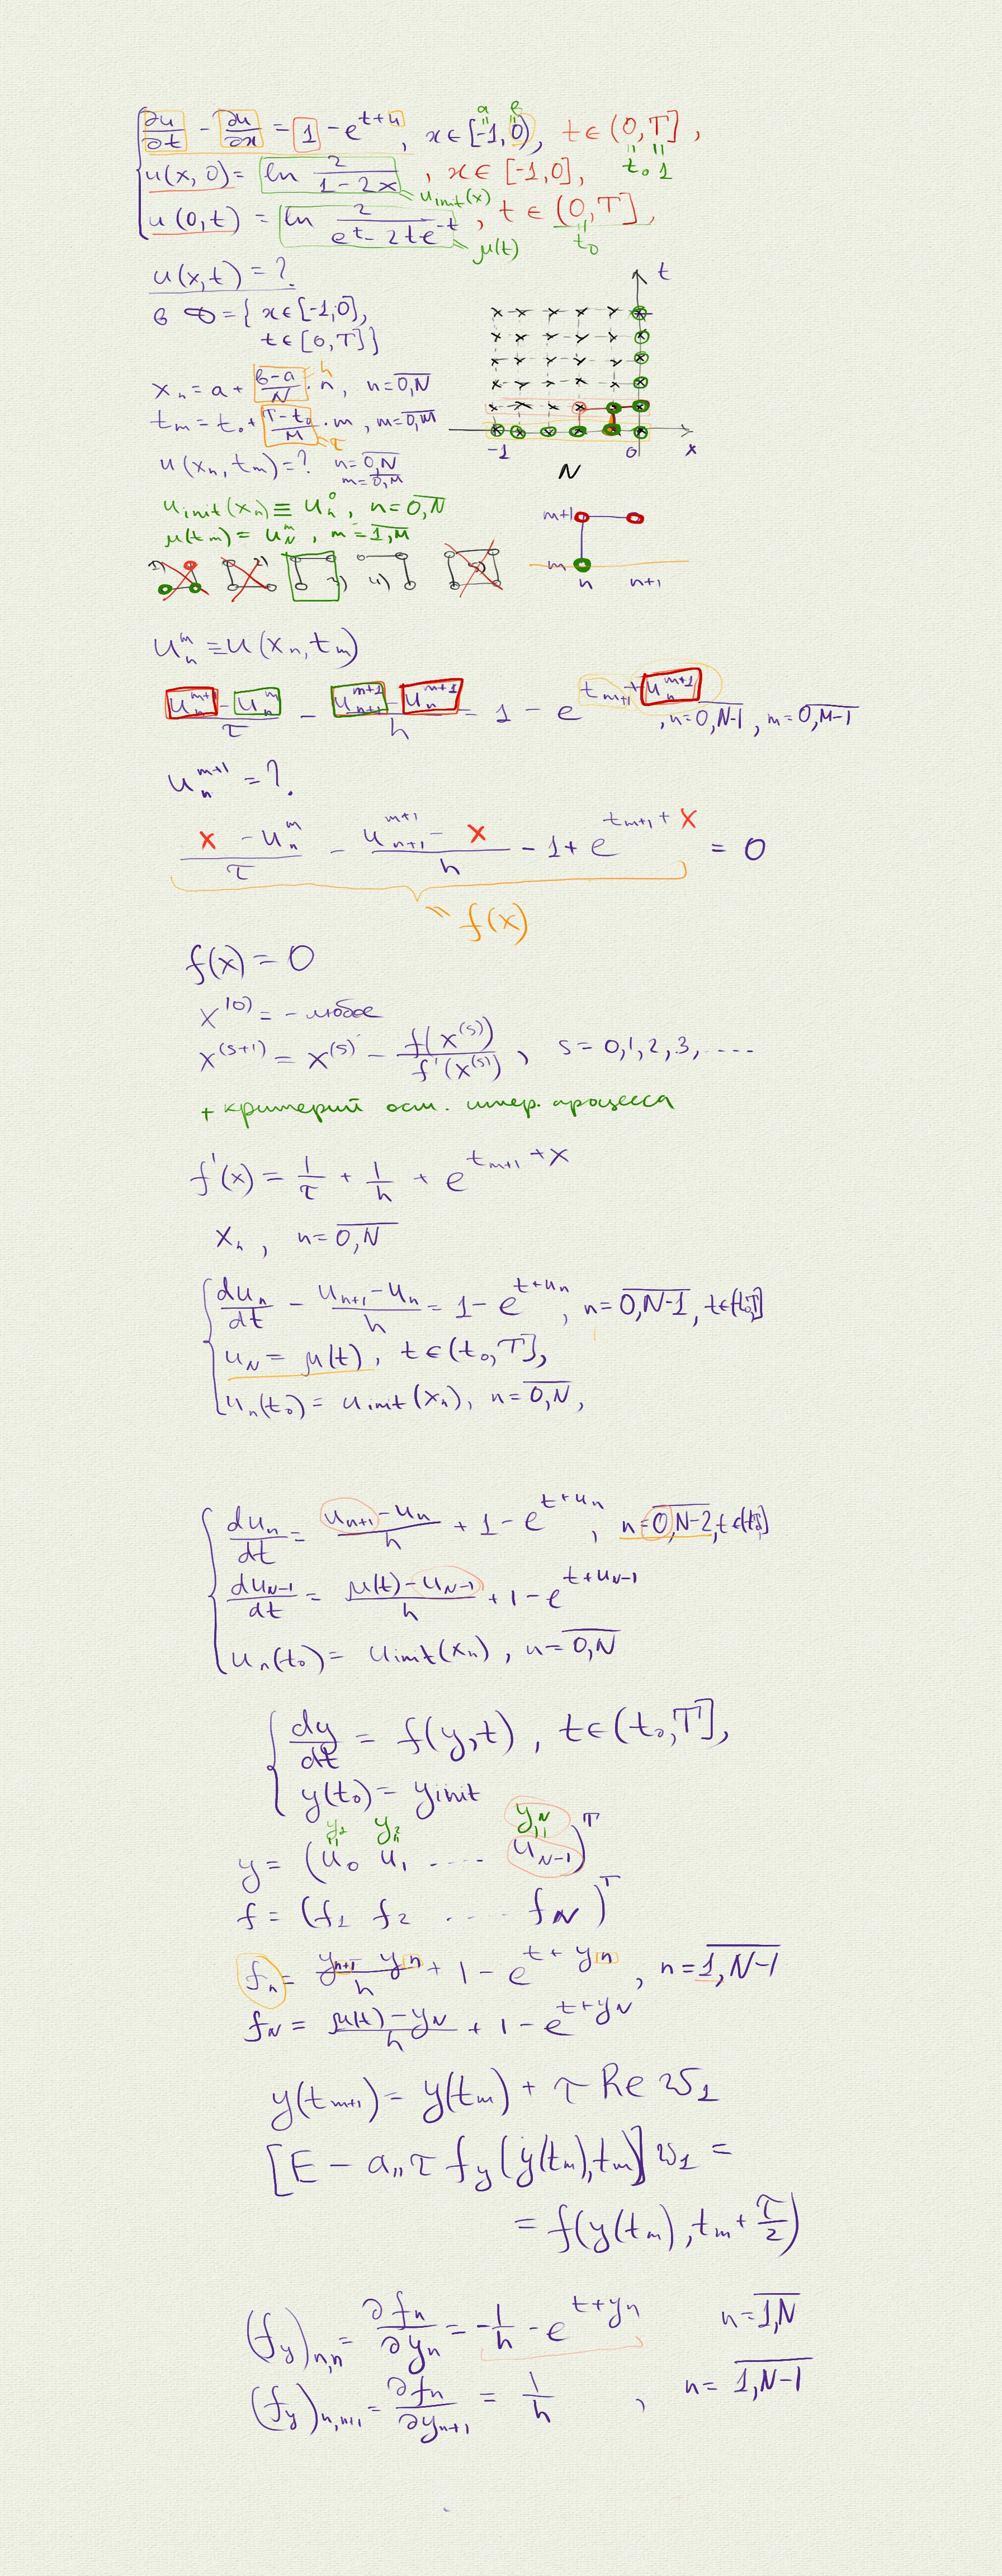 a b
∂u/∂t - ∂u/∂x = 1 - e^{t+u}, x∈[-1,0), t∈(0,T],
t₀ 1
u(x,0) = ln 2/(1-2x), x∈[-1,0],
u_init(x)
u(0,t) = ln 2/(e^t - 2te^{-t}), t∈(0,T],
μ(t) t₀
u(x,t) = ?
t
в D = { x∈[-1,0],
t∈[0,T] }
x_n = a + (b-a)/N · n, n = \overline{0,N}
h
t_m = t₀ + (T-t₀)/M · m, m = \overline{0,M}
τ
-1 0 x
u(x_n, t_m) = ? n = \overline{0,N}
m = \overline{0,M}
N
u_init(x_n) ≡ u_n^0, n = \overline{0,N}
μ(t_m) = u_N^m, m = \overline{1,M}
m+1
1) 2) 3) 4) 5)
m
n n+1
u_n^m ≡ u(x_n, t_m)
(u_n^{m+1} - u_n^m)/τ - (u_{n+1}^{m+1} - u_n^{m+1})/h = 1 - e^{t_{m+1} + u_n^{m+1}}, n = \overline{0,N-1}, m = \overline{0,M-1}
u_n^{m+1} = ?
(x - u_n^m)/τ - (u_{n+1}^{m+1} - x)/h - 1 + e^{t_{m+1} + x} = 0
f(x)
f(x) = 0
x^{(0)} = - любое
x^{(s+1)} = x^{(s)} - f(x^{(s)})/f'(x^{(s)}), s = 0,1,2,3,....
+ критерий ост. итер. процесса
f'(x) = 1/τ + 1/h + e^{t_{m+1} + x}
x_n, n = \overline{0,N}
du_n/dt - (u_{n+1} - u_n)/h = 1 - e^{t+u_n}, n = \overline{0,N-1}, t∈(t₀,T]
u_N = μ(t), t∈(t₀,T],
u_n(t₀) = u_init(x_n), n = \overline{0,N},
du_n/dt = (u_{n+1} - u_n)/h + 1 - e^{t+u_n}, n = \overline{0,N-2}, t∈(t₀,T]
du_{N-1}/dt = (μ(t) - u_{N-1})/h + 1 - e^{t+u_{N-1}}
u_n(t₀) = u_init(x_n), n = \overline{0,N}
dy/dt = f(y,t), t∈(t₀,T],
y(t₀) = y_init
y_2 y_N
y = (u_0 u_1 .... u_{N-1})^T
f = (f_1 f_2 .... f_N)^T
f_n = (y_{n+1} - y_n)/h + 1 - e^{t+y_n}, n = \overline{1,N-1}
f_N = (μ(t) - y_N)/h + 1 - e^{t+y_N}
y(t_{m+1}) = y(t_m) + τ Re w_1
[E - a_{11} τ f_y(y(t_m), t_m)] w_1 =
= f(y(t_m), t_m + τ/2)
(f_y)_{n,n} = ∂f_n/∂y_n = -1/h - e^{t+y_n} n = \overline{1,N}
(f_y)_{n,n+1} = ∂f_n/∂y_{n+1} = 1/h, n = \overline{1,N-1}